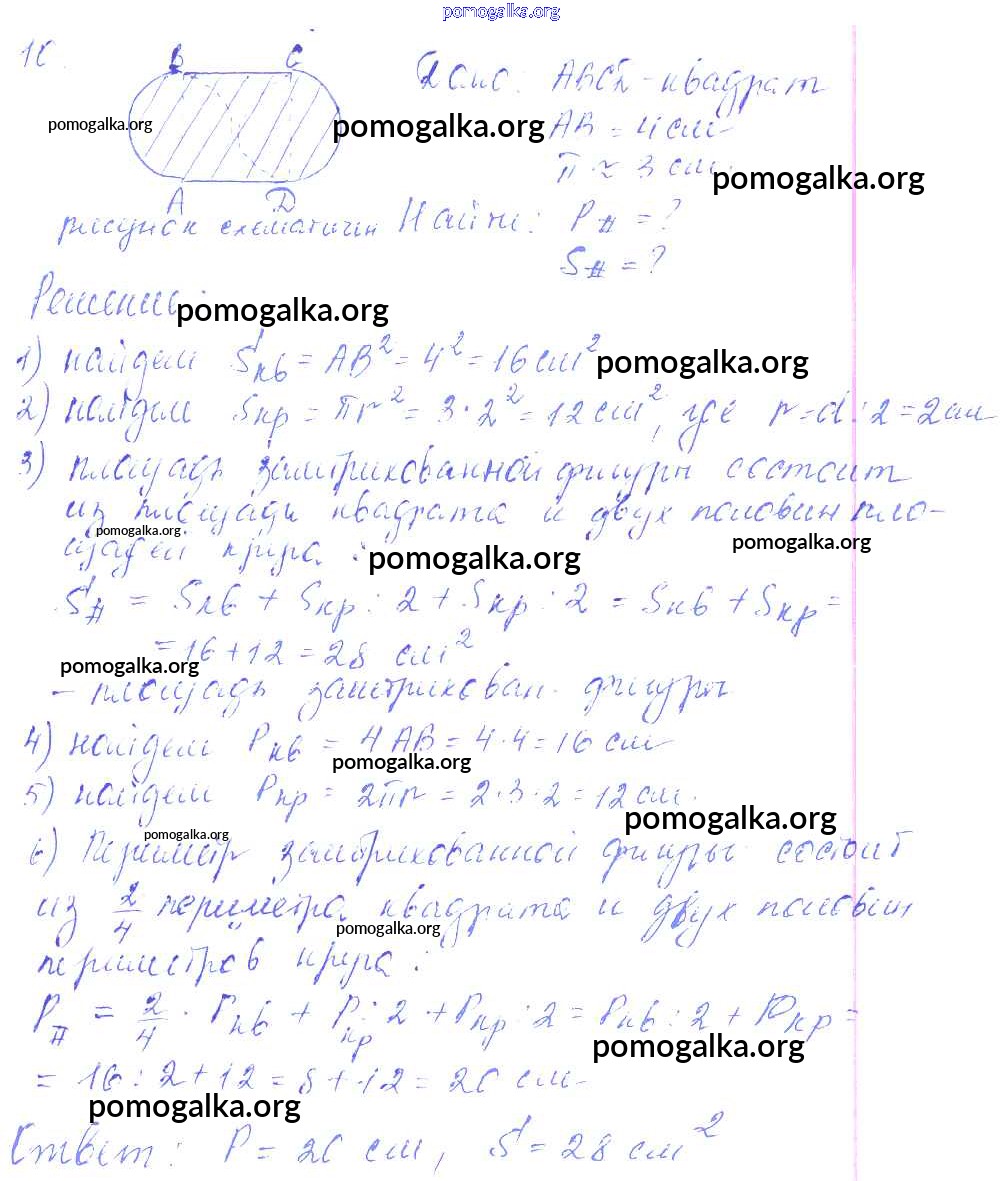 pomogalka.org
10.
B C
Дано: ABCD - квадрат
pomogalka.org pomogalka.org AB = 4 см
π ≈ 3 см. pomogalka.org
A D
рисунок схематичен Найти: P# = ?
S# = ?
Решение: pomogalka.org
1) найдем Sкв = AB² = 4² = 16 см² pomogalka.org
2) найдем Sкр = πr² = 3·2² = 12 см², где r = d:2 = 2 см
3) площадь заштрихованной фигуры состоит
из площади квадрата и двух половин пло-
pomogalka.org pomogalka.org
щадей круга: pomogalka.org
S# = Sкв + Sкр:2 + Sкр:2 = Sкв + Sкр =
= 16 + 12 = 28 см²
pomogalka.org
- площадь заштрихован. фигуры
4) найдем Pкв = 4AB = 4·4 = 16 см
pomogalka.org
5) найдем Pкр = 2πr = 2·3·2 = 12 см.
pomogalka.org
pomogalka.org
6) Периметр заштрихованной фигуры состоит
из 2/4 периметра квадрата и двух половин
pomogalka.org
периметров круга:
P# = 2/4 · Pкв + Pкр:2 + Pкр:2 = Pкв:2 + Pкр =
pomogalka.org
= 16:2 + 12 = 8 + 12 = 20 см
pomogalka.org
Ответ: P = 20 см, S = 28 см²